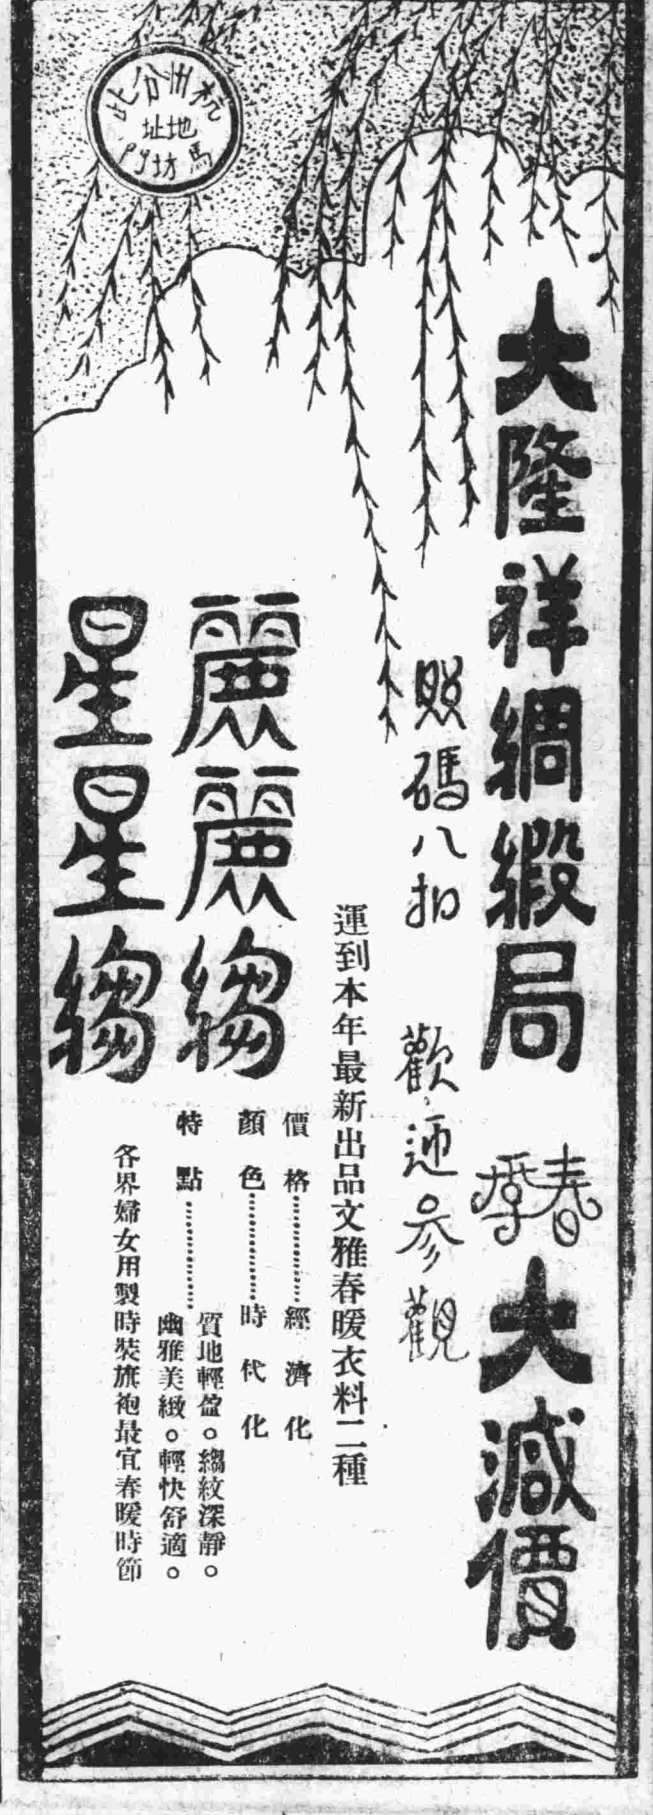 大隆祥綢緞局 春季大減價
照碼八扣 歡迎參觀
運到本年最新出品文雅春暖衣料二種
麗麗縐
星星縐
價格……………經濟化
顏色……………時代化
特點……………
質地輕盈。縐紋深靜。
幽雅美緻。輕快舒適。
各界婦女用製時裝旗袍最宜春暖時節
杭州分此
地址
馬坊門